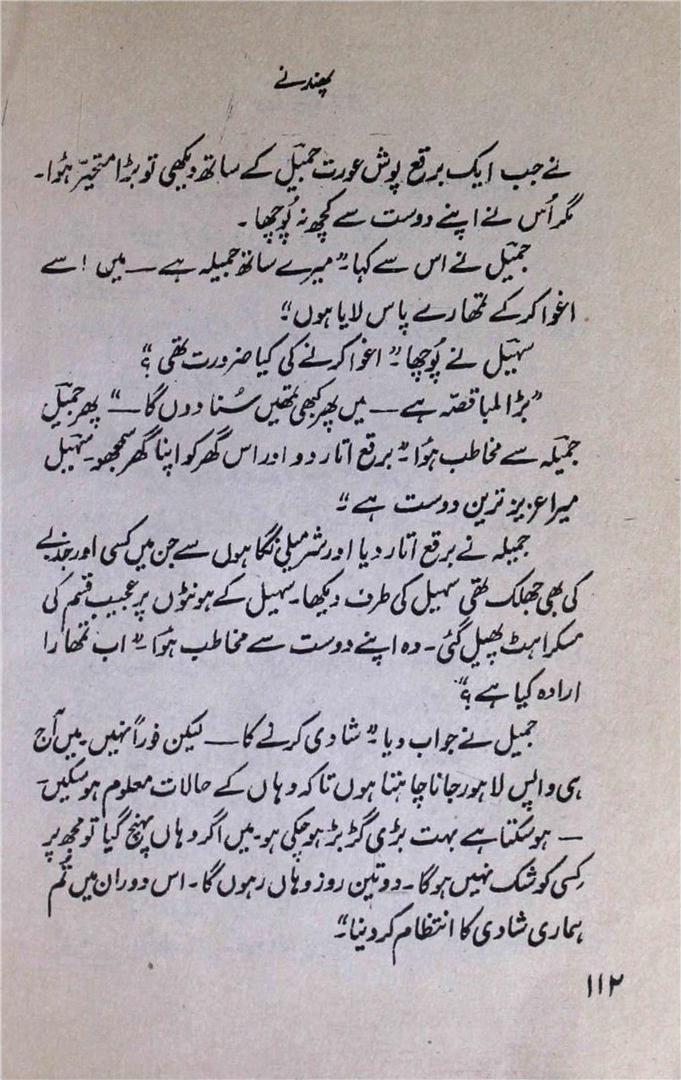 پھندنے
نے جب ایک برقع پوش عورت جمیل کے ساتھ دیکھی تو بڑا متحیّر ہؤا۔
مگر اُس نے اپنے دوست سے کچھ نہ پُوچھا۔
جمیل نے اس سے کہا۔” میرے ساتھ جمیلہ ہے — میں اسے
اغوا کرکے تمھارے پاس لایا ہوں“
سہیل نے پُوچھا۔” اغوا کرنے کی کیا ضرورت تھی؟“
”بڑا لمبا قصّہ ہے — میں پھر کبھی تمھیں سُنا دوں گا —“ پھر جمیل
جمیلہ سے مخاطب ہؤا۔” برقع اتار دو اور اس گھر کو اپنا گھر سمجھو۔ سہیل
میرا عزیز ترین دوست ہے“
جمیلہ نے برقع اتار دیا اور شرمیلی نگاہوں سے جن میں کسی اور جذبے
کی بھی جھلک تھی سہیل کی طرف دیکھا۔ سہیل کے ہونٹوں پر عجیب قسم کی
مسکراہٹ پھیل گئی۔ وہ اپنے دوست سے مخاطب ہؤا۔” اب تمھارا
ارادہ کیا ہے؟“
جمیل نے جواب دیا۔” شادی کرنے کا — لیکن فوراً نہیں۔ میں آج
ہی واپس لاہور جانا چاہتا ہوں تاکہ وہاں کے حالات معلوم ہوسکیں۔
— ہوسکتا ہے بہت بڑی گڑبڑ ہوچکی ہو۔ میں اگر وہاں پہنچ گیا تو مجھ پر
کِسی کو شک نہیں ہوگا۔ دو تین روز وہاں رہوں گا۔ اس دوران میں تُم
ہماری شادی کا انتظام کر دینا۔“
۱۱۲